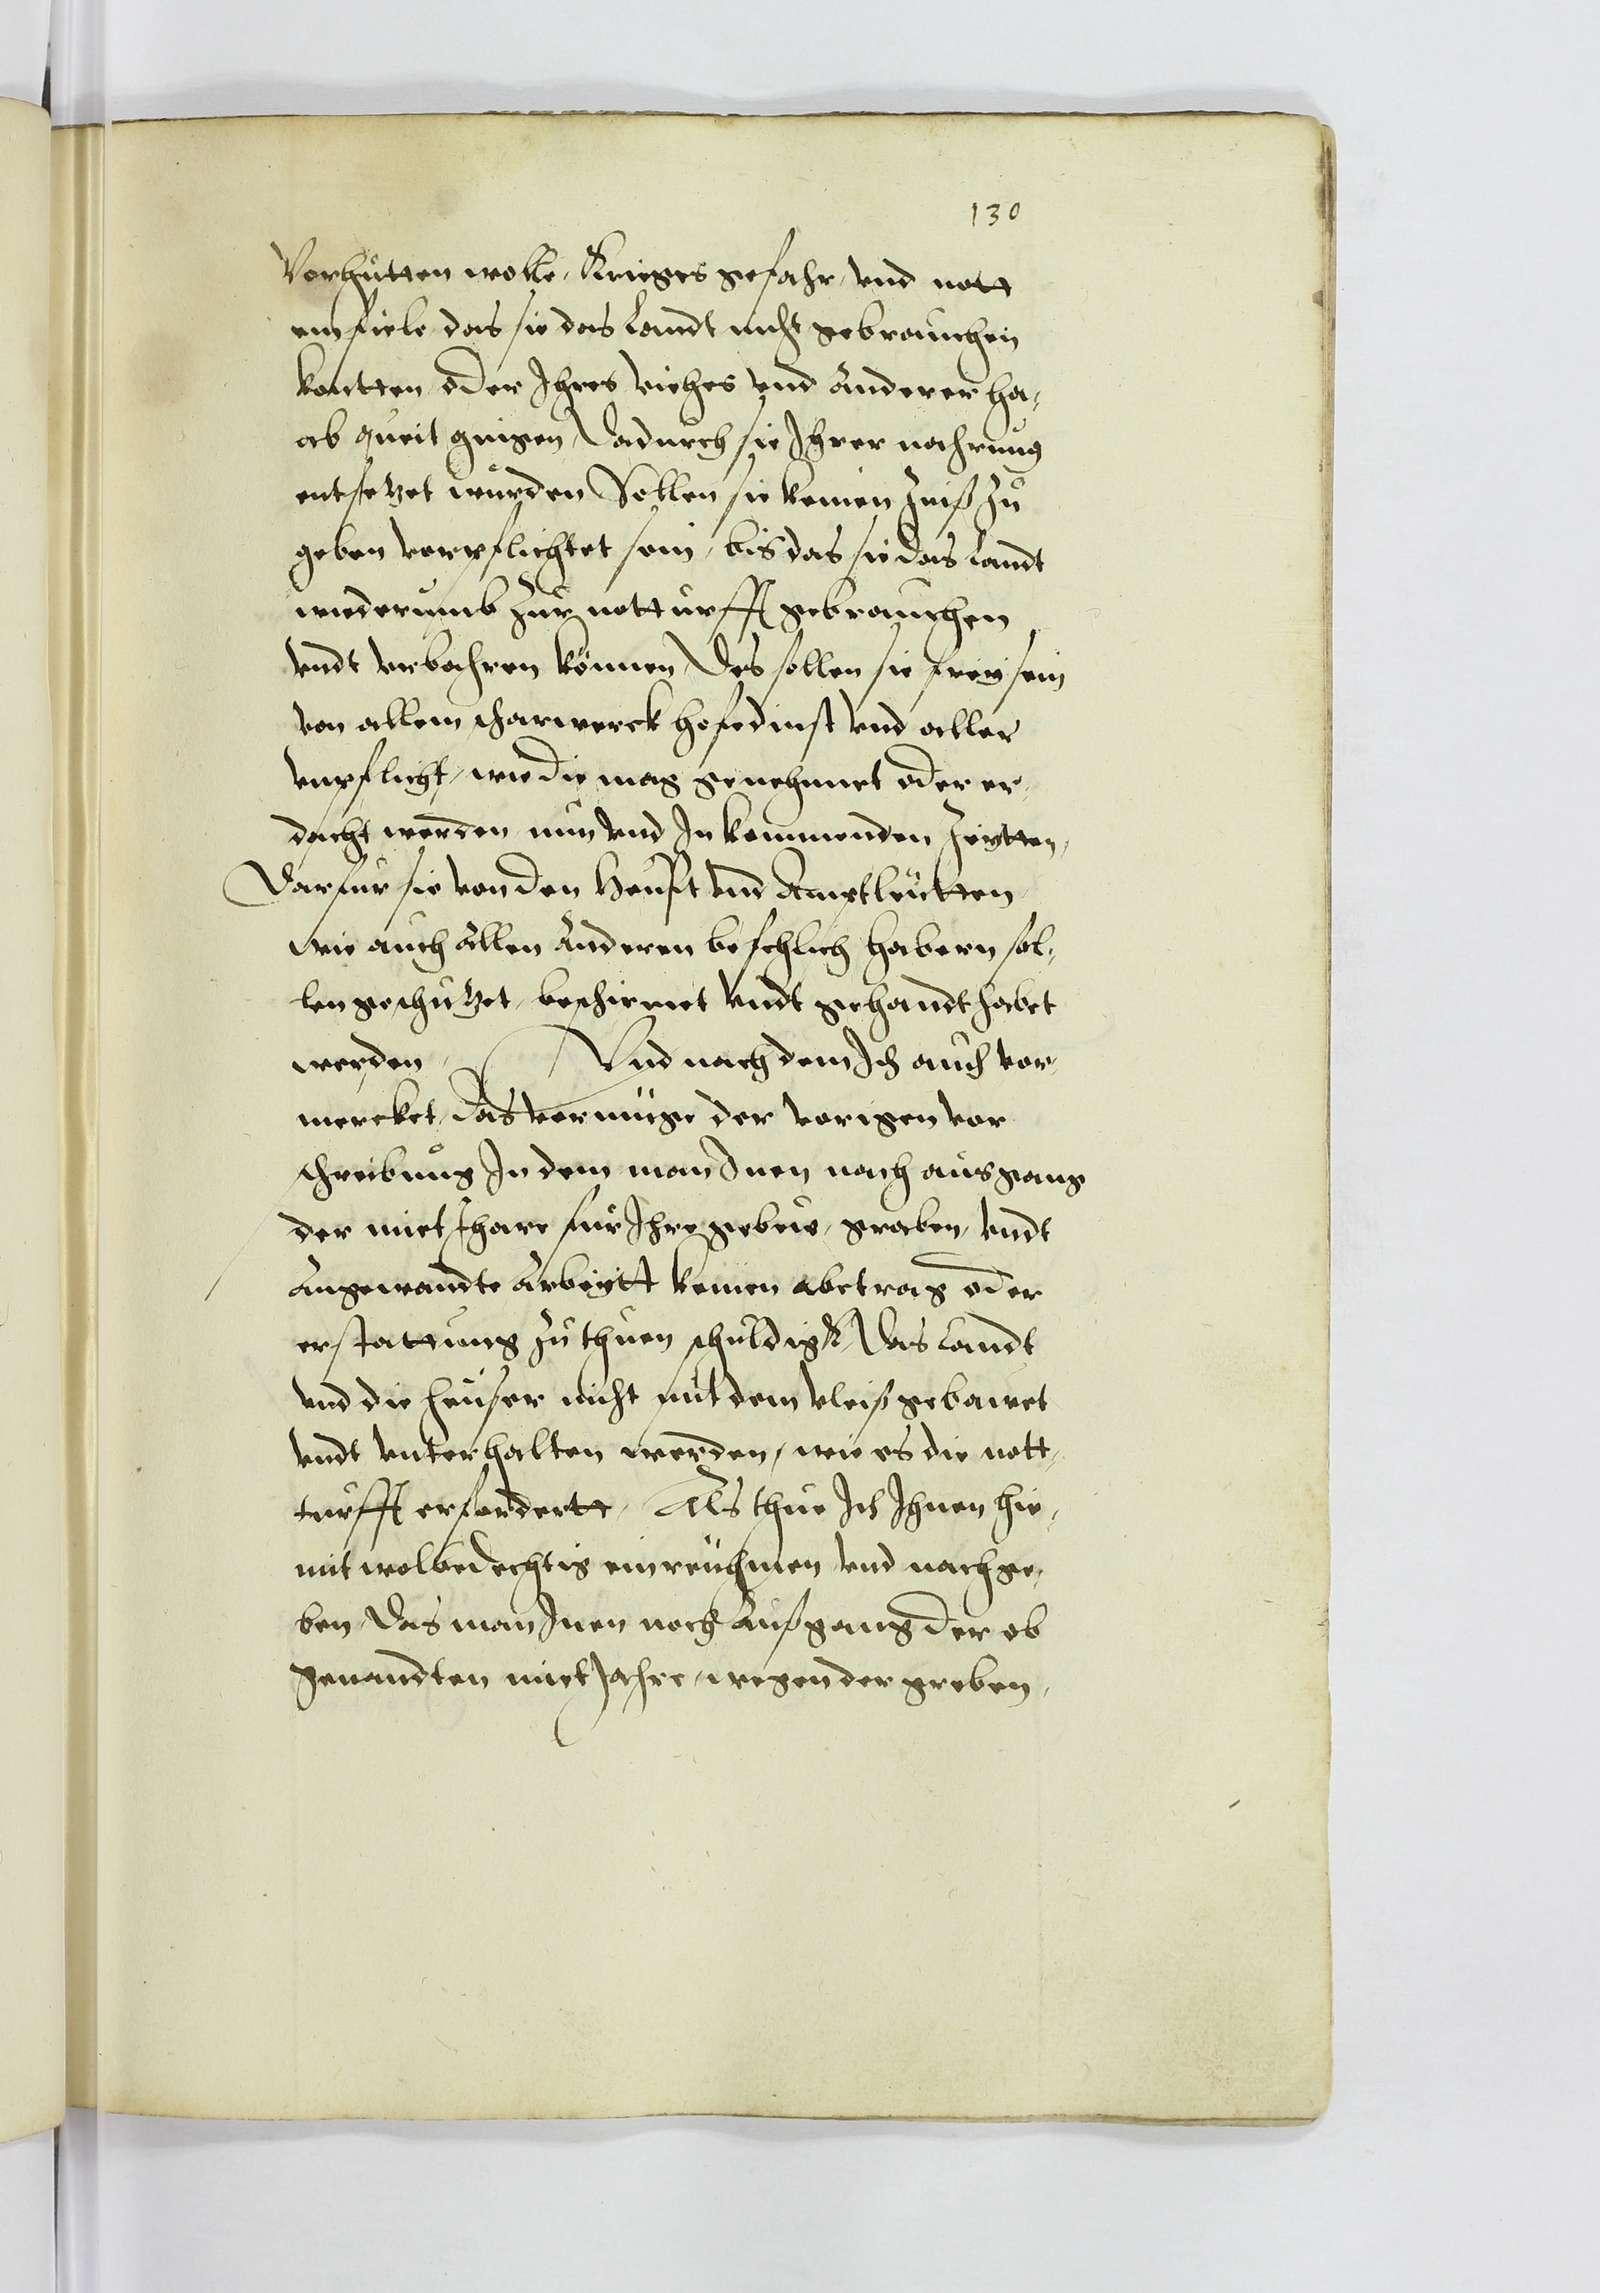 130
Verhutten wolle, Krieges gefahr, vnd nott
einfiele das sie das Landt nicht gebrauchen
kontten, oder Ihres viehes vnd anderer ha¬
ab queit gingen, Dadurch sie Ihrer nahrung
entsetzet wurden, Sollen sie keinen Zinß zu
geben verpflichtet sein, bis das sie das Landt
wiederumb zur notturfft gebrauchen
vndt erbahren können, Des sollen sie frey sein
von allem scharwerck hofedinst vnd aller
vnpflicht, wie die mag genehmet oder er¬
dacht werden nun vnd In kommenden Zeytten,
Darfur sie von den Heupt vnd Amptleutten
wie auch allen anderen befehlich habern sol¬
len geschutzet, beschirmet vndt gehandthabet
werden, Vnd nach dem Ich auch ver¬
mercket, das vermüge der vorigen vor
schreibung In dem man Inen nach ausgang
der miet Jhare fur Ihre gebew, graben, vndt
Angewandte Arbeytt keinen abetrag oder
erstattung zu thuen schuldigk, Das Landt
vnd die heuser nicht mit dem vleiß gebawet
vndt vnterhalten werden, wie es die nott¬
turfft erfordertt, Als thue Ich Ihnen hie¬
mit wolbedechtig einreuhmen vnd nachge¬
ben, Das man Inen nach Außgang der ob
genandten miet Jahre, wegen der greben,